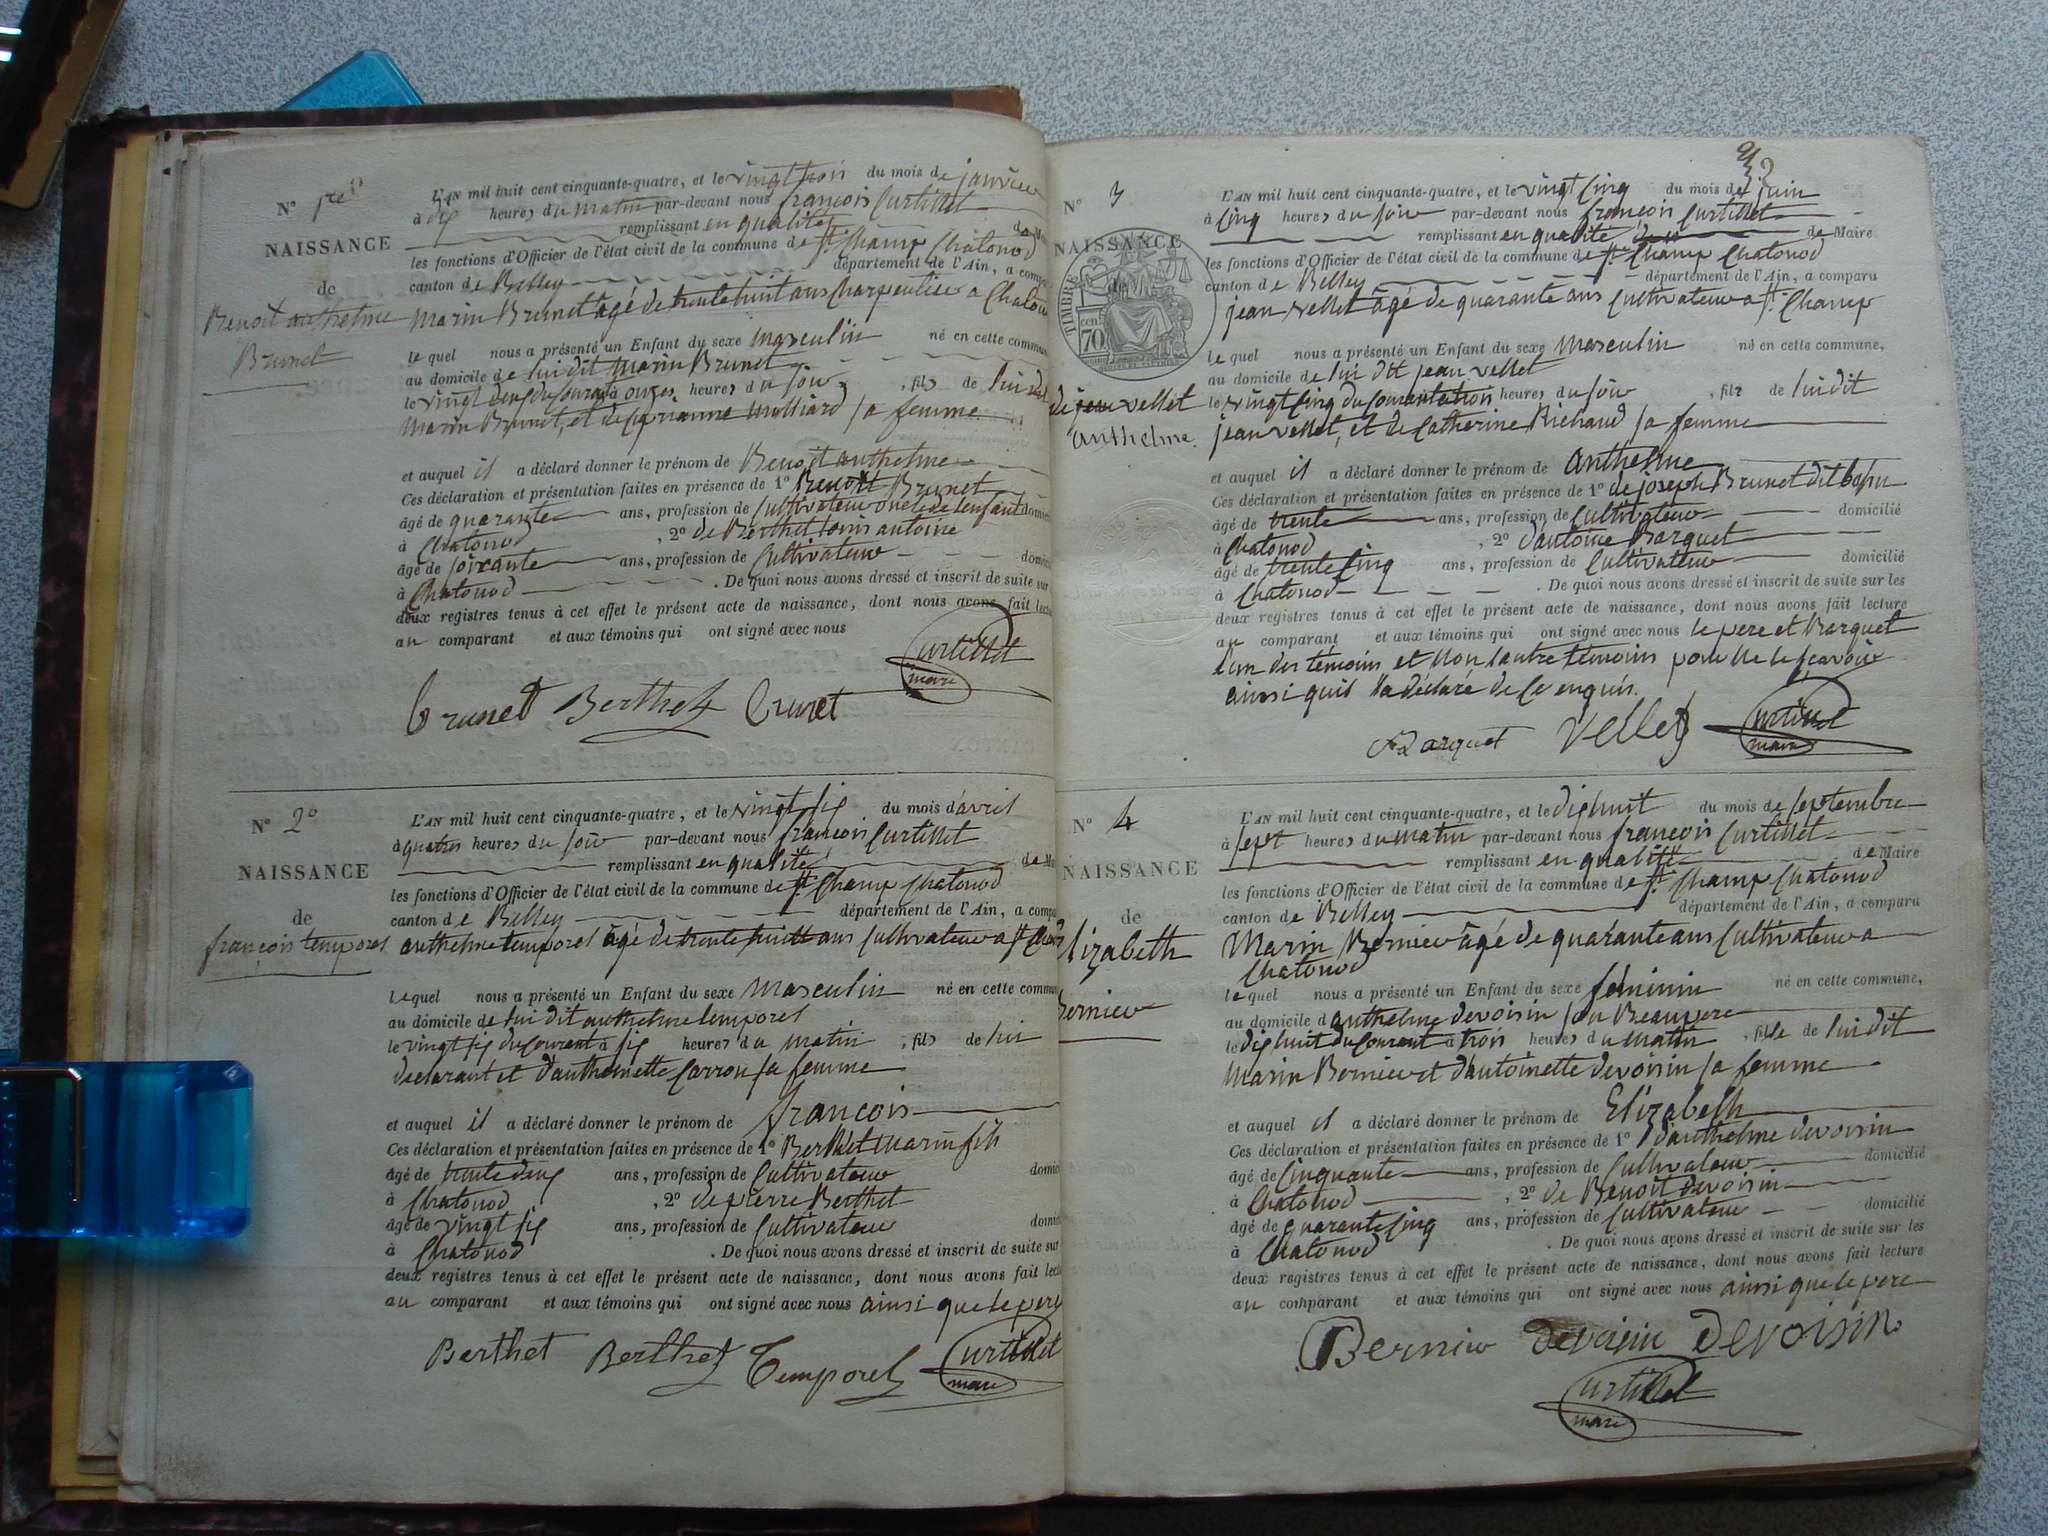 N° 1er
NAISSANCE
de
Benoit anthelme
Brunet
L'AN mil huit cent cinquante-quatre, et le vingt trois du mois de janvier
à dix heures du matin par-devant nous françois Curtillet
remplissant en qualité de Mai
les fonctions d'Officier de l'état civil de la commune de St. Champ Chatonod
canton de Belley département de l'Ain, a compa
Marin Brunet âgé de trente huit ans Charpentier a Chatono
le quel nous a présenté un Enfant du sexe masculin né en cette commun
au domicile de lui dit Marin Brunet
le vingt deux du courant à onze heures du soir, fils de lui dit
Marin Brunet, et de Marianne Molliard sa femme
et auquel il a déclaré donner le prénom de Benoit anthelme
Ces déclaration et présentation faites en présence de 1° Benoit Brunet
âgé de quarante ans, profession de Cultivateur oncle de lenfant domici
à Chatonod, 2° de Berthet louis antoine
âgé de soixante ans, profession de Cultivateur domici
à Chatonod. De quoi nous avons dressé et inscrit de suite sur
deux registres tenus à cet effet le présent acte de naissance, dont nous avons fait lectu
au comparant et aux témoins qui ont signé avec nous
Curtillet
maire
brunet Berthet brunet
N° 2°
NAISSANCE
de
françois temporel
L'AN mil huit cent cinquante-quatre, et le vingt six du mois d'avril
à quatre heures du soir par-devant nous françois Curtillet
remplissant en qualité de Ma
les fonctions d'Officier de l'état civil de la commune de St. Champ Chatonod
canton de Belley département de l'Ain, a compa
anthelme temporel âgé de trente huit ans Cultivateur a St. Champ
lequel nous a présenté un Enfant du sexe Masculin né en cette commun
au domicile de lui dit anthelme temporel
le vingt six du courant à six heures du matin, fils de lui
déclarant et d'anthelmette Carron sa femme
et auquel il a déclaré donner le prénom de françois
Ces déclaration et présentation faites en présence de 1° Berthet Marin fils
âgé de trente deux ans, profession de Cultivateur domici
à Chatonod, 2° de pierre Berthet
âgé de vingt six ans, profession de Cultivateur domici
à Chatonod. De quoi nous avons dressé et inscrit de suite sur
deux registres tenus à cet effet le présent acte de naissance, dont nous avons fait lectu
au comparant et aux témoins qui ont signé avec nous ainsi que le pere
Berthet Berthet Temporel Curtillet
maire
N° 3
NAISSANCE
TIMBRE
cent. 70
de jean vellet
anthelme
L'AN mil huit cent cinquante-quatre, et le vingt Cinq du mois de juin
à Cinq heures du soir par-devant nous françois Curtillet
remplissant en qualité de Maire
les fonctions d'Officier de l'état civil de la commune de St. Champ Chatonod
canton de Belley département de l'Ain, a comparu
jean vellet âgé de quarante ans Cultivateur a St. Champ
le quel nous a présenté un Enfant du sexe Masculin né en cette commune,
au domicile de lui dit jean vellet
le vingt Cinq du courant à trois heures du soir, fils de lui dit
jean vellet, et de Catherine Richaud sa femme
et auquel il a déclaré donner le prénom de anthelme
Ces déclaration et présentation faites en présence de 1° de joseph Brunet dit
âgé de trente ans, profession de Cultivateur domicilié
à Chatonod, 2° d'antoine Barquet
âgé de trente Cinq ans, profession de Cultivateur domicilié
à Chatonod. De quoi nous avons dressé et inscrit de suite sur les
deux registres tenus à cet effet le présent acte de naissance, dont nous avons fait lecture
au comparant et aux témoins qui ont signé avec nous le pere et Barquet
l'un des témoins et Non l'autre témoins pour Ne le scavoir
ainsi quil la déclaré de ce enquis.
Barquet Vellet Curtillet
maire
N° 4
NAISSANCE
de
Elizabeth
Bernier
L'AN mil huit cent cinquante-quatre, et le dix huit du mois de septembre
à sept heures du matin par-devant nous françois Curtillet
remplissant en qualité de Maire
les fonctions d'Officier de l'état civil de la commune de St. Champ Chatonod
canton de Belley département de l'Ain, a comparu
Marin Bernier âgé de quarante ans Cultivateur a
Chatonod
le quel nous a présenté un Enfant du sexe féminin né en cette commune,
au domicile d'anthelme devoisin son Beaupere
le dix huit du Courant à trois heures du matin, fille de lui dit
Marin Bernier et d'antoinette devoisin sa femme
et auquel il a déclaré donner le prénom de Elizabeth
Ces déclaration et présentation faites en présence de 1° d'anthelme devoisin
âgé de Cinquante ans, profession de Cultivateur domicilié
à Chatonod, 2° de Benoit devoisin
âgé de quarante Cinq ans, profession de Cultivateur domicilié
à Chatonod. De quoi nous avons dressé et inscrit de suite sur les
deux registres tenus à cet effet le présent acte de naissance, dont nous avons fait lecture
au comparant et aux témoins qui ont signé avec nous ainsi que le pere
Bernier devoisin Devoisin
Curtillet
maire